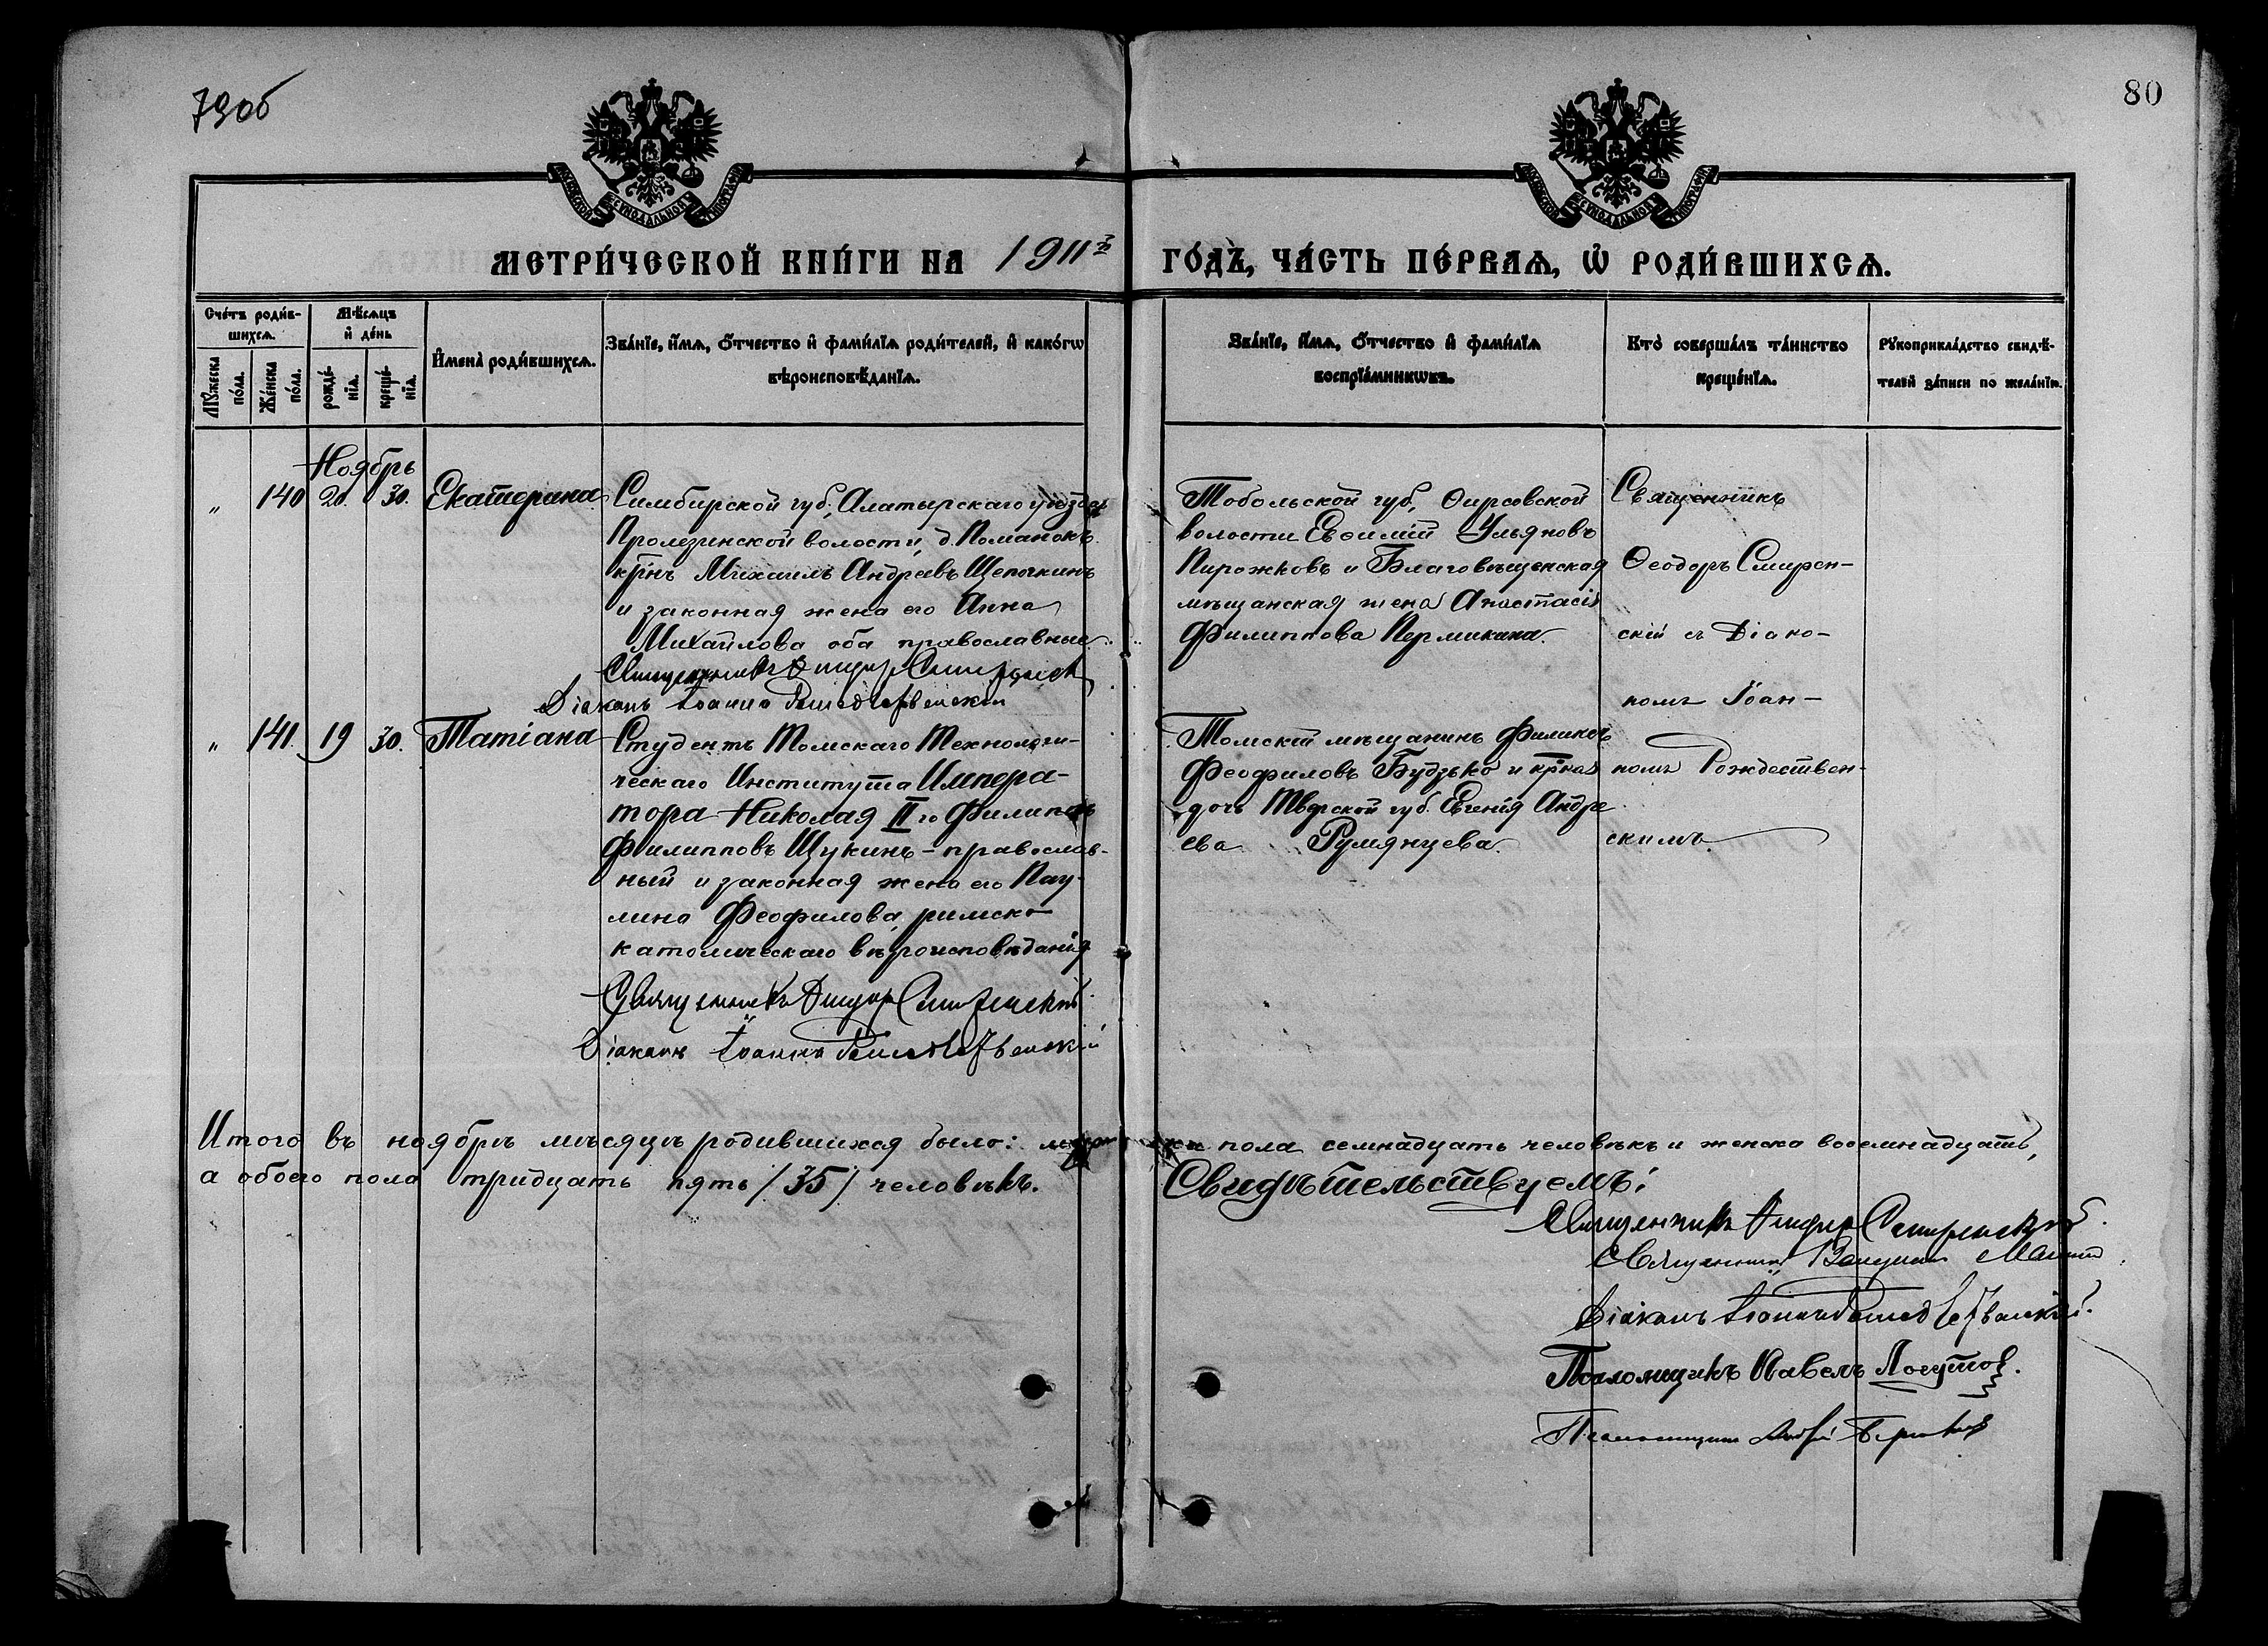 79об
80
МЕТРИ́ЧЕСКОЙ КНИ́ГИ НА 1911й
ГО́ДЪ, ЧА́СТЬ ПЕ́РВАѦ, Ѡ҆ РОДИ́ВШИХСѦ.
Сче́тъ роди́в-
шихсѧ.
Мꙋ́жеска
по́ла.
Же́нска
по́ла.
Мѣ́сѧцъ
и҆ де́нь
рожде́-
нїѧ.
креще́-
нїѧ.
И҆мена̀ роди́вшихсѧ.
Зва́нїе, и҆́мѧ, ѻ҆́тчество и҆ фами́лїѧ роди́телей, и҆ како́гѡ
вѣроисповѣ́данїѧ.
Зва́нїе, и҆́мѧ, ѻ҆́тчество и҆ фами́лїѧ
воспрїе́мникѡвъ.
Кто̀ соверша́лъ та́инство
креще́нїѧ.
Рꙋкоприкла́дство свидѣ́-
телей за́писи по жела́нїю.
Ноябрь
" 140 20. 30. Екатерина
Симбирской губ., Алатырскаго уѣзда
Промзинской волости, д. Поманокъ
кр͞нъ Михаилъ Андреевъ Щепочкинъ
и законная жена его Анна
Михайлова оба православные.
Священникъ Ѳеодоръ Смиренскій
Діаконъ Іоаннъ Рождественскій
Тобольской губ.,
волости Евѳимій Ульяновъ
Пирожковъ и Благовѣщенская
мѣщанская жена Анастасія
Филиппова Пермикина.
Священникъ
Ѳеодоръ Смирен-
скій съ Діако-
номъ Іоан-
номъ Рождествен-
скимъ.
" 141. 19 30. Татіана
Студентъ Томскаго Технологи-
ческаго Института Импера-
тора Николая II го Филиппъ
Филипповъ Щукинъ - православ-
ный и законная жена его Пау-
лина Феофилова, римско
католическаго вѣроисповѣданія
Священникъ Ѳеодоръ Смиренскій.
Діаконъ Іоаннъ Рождественскій
Томскій мѣщанинъ Феликсъ
Феофиловъ Будзько и кр͞ная
дочь Тверской губ. Евгенія Андре
ева Румянцева.
Итого въ ноябрѣ мѣсяцѣ родившихся было: мужеска пола семнадцать человѣкъ и женска восемнадцать,
а обоего пола тридцать пять /35/ человѣкъ. Свидѣтельствуемъ:
Священникъ Ѳеодоръ Смиренскій.
Священникъ
Діаконъ Іоаннъ Рождественскій.
Псаломщикъ Павелъ Логутов.
Псаломщикъ